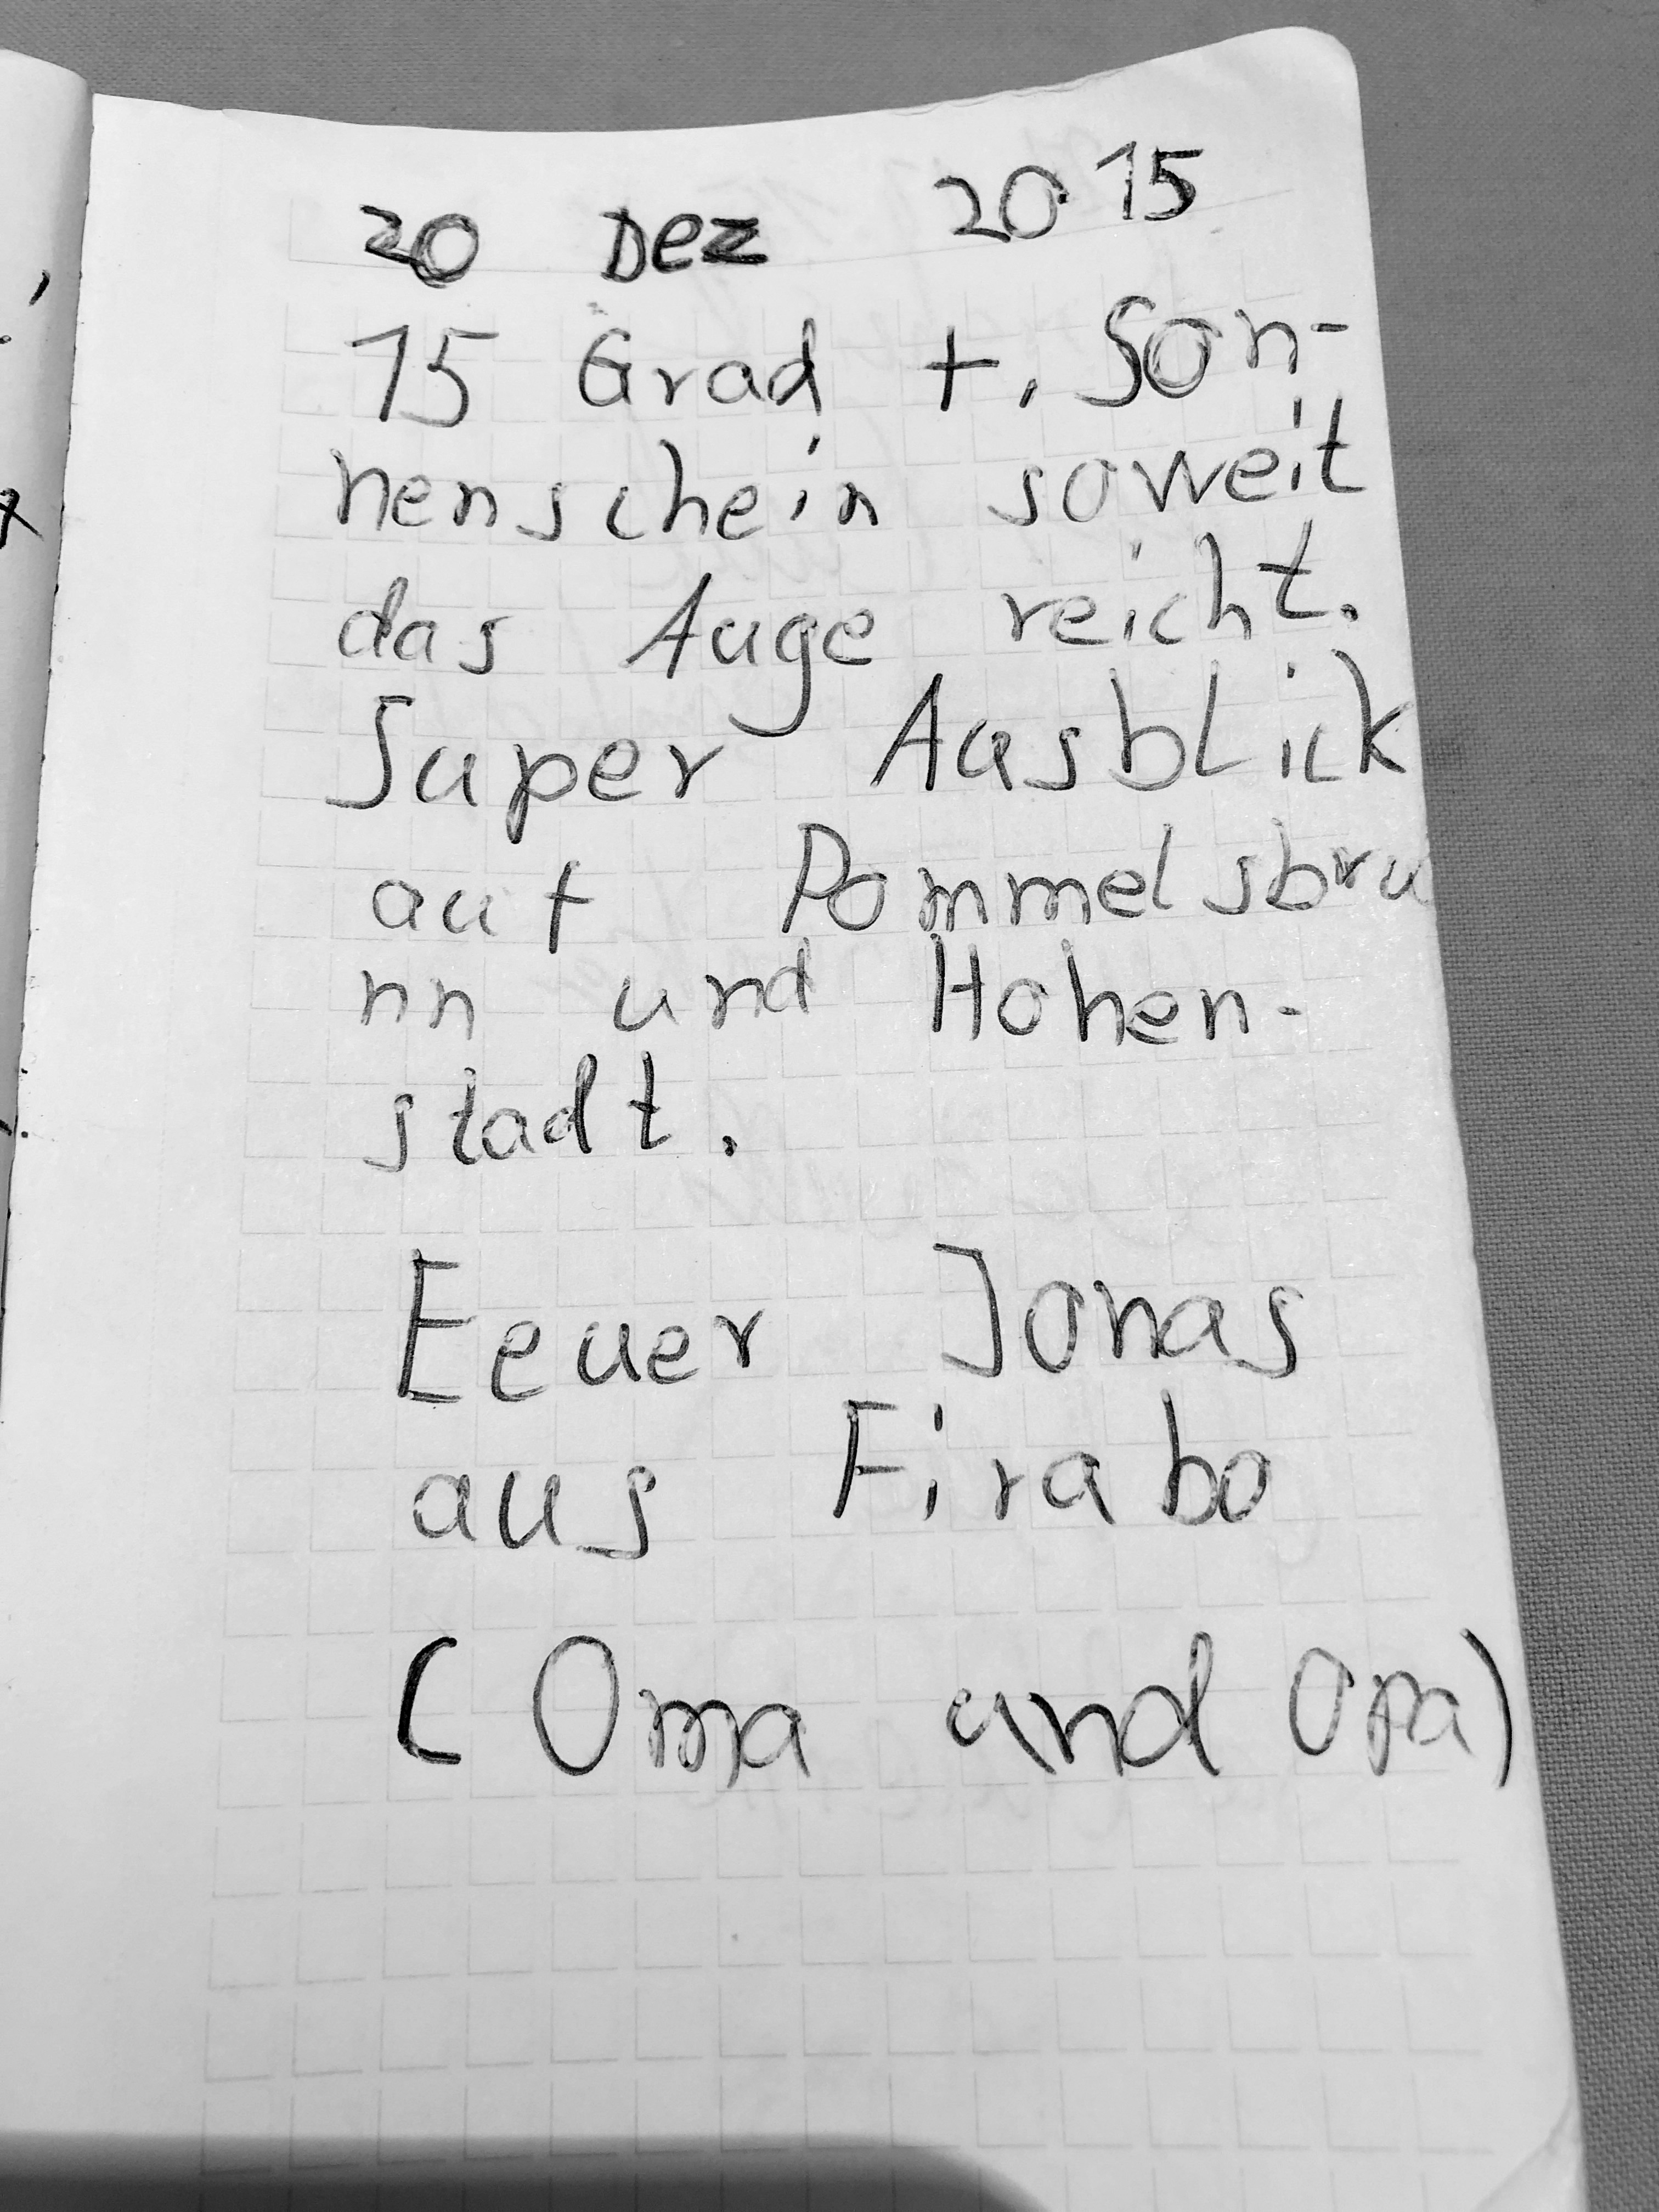 20 Dez 2015
15 Grad +, Son-
nenschein soweit
das Auge reicht.
Super Ausblick
auf Pommelsbru
nn und Hohen-
stadt.
Eeuer Jonas
aus Firabo
(Oma und Opa)